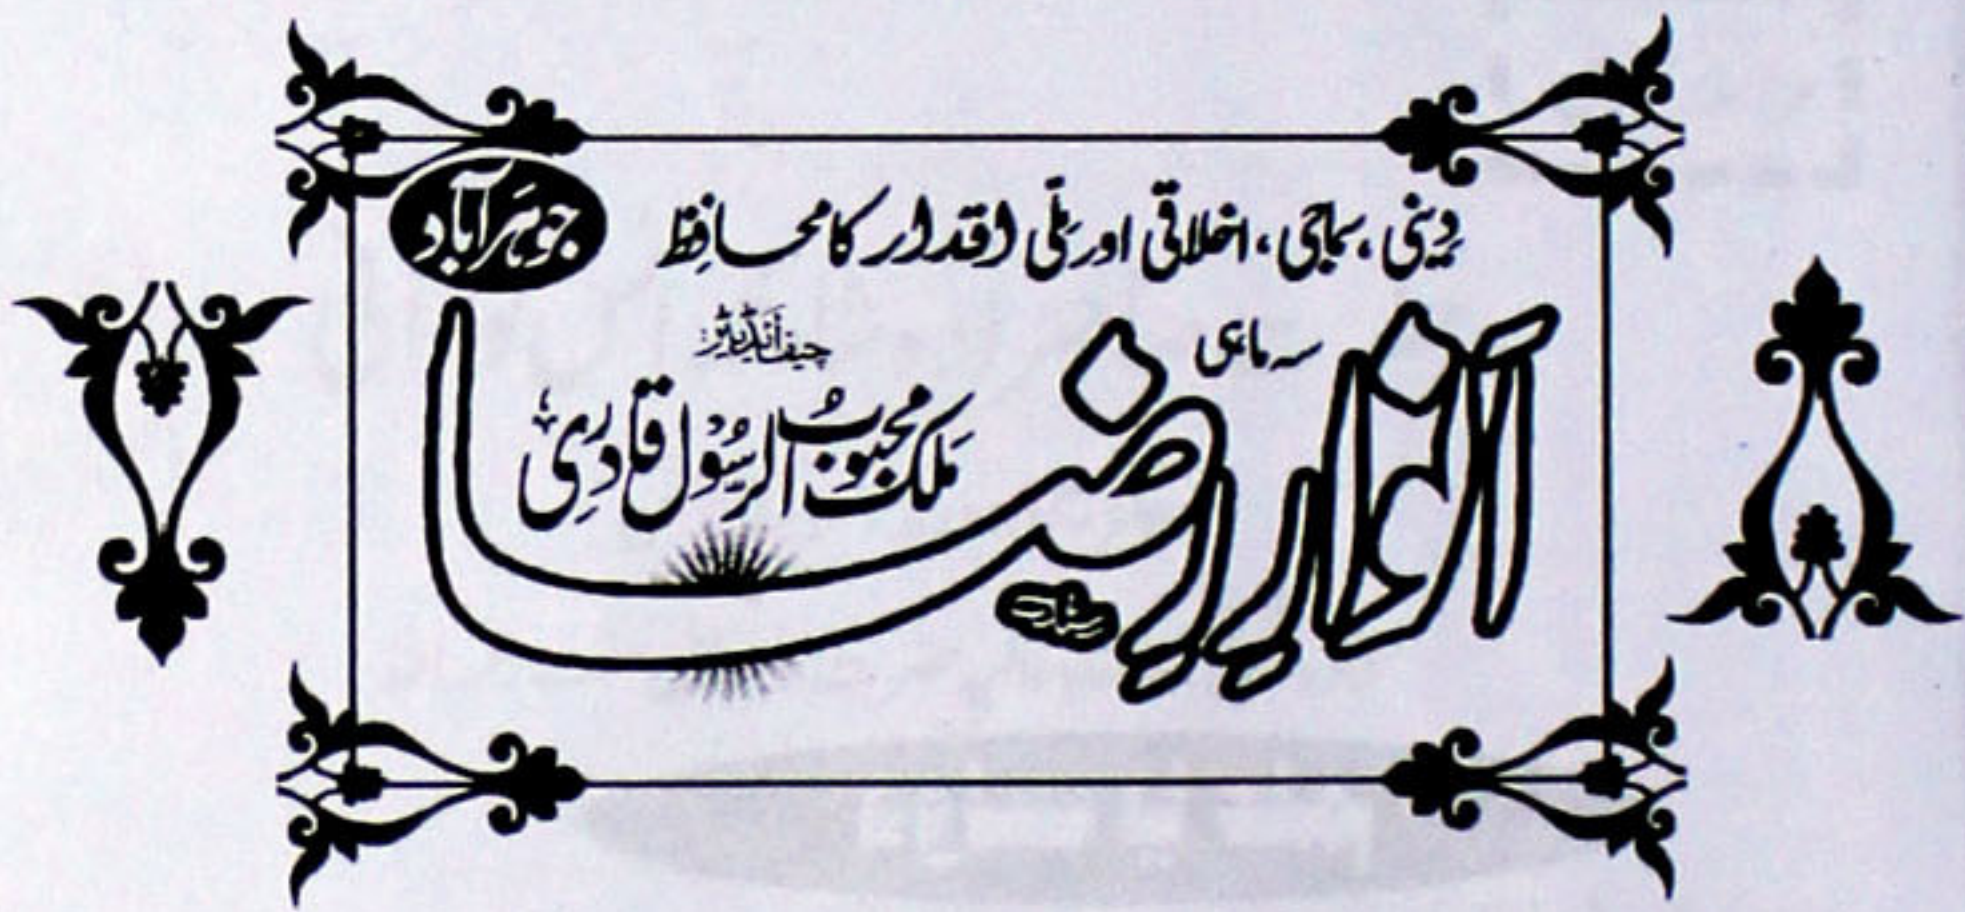 دِینی، سماجی، اخلاقی اور مِلّی اقدار کا محافِظ
جوہَرآباد
سہ ماہی
انوارِ رضا
چیف اَیڈیٹر
مَلک محبوبُ الرسُوْل قادرِی